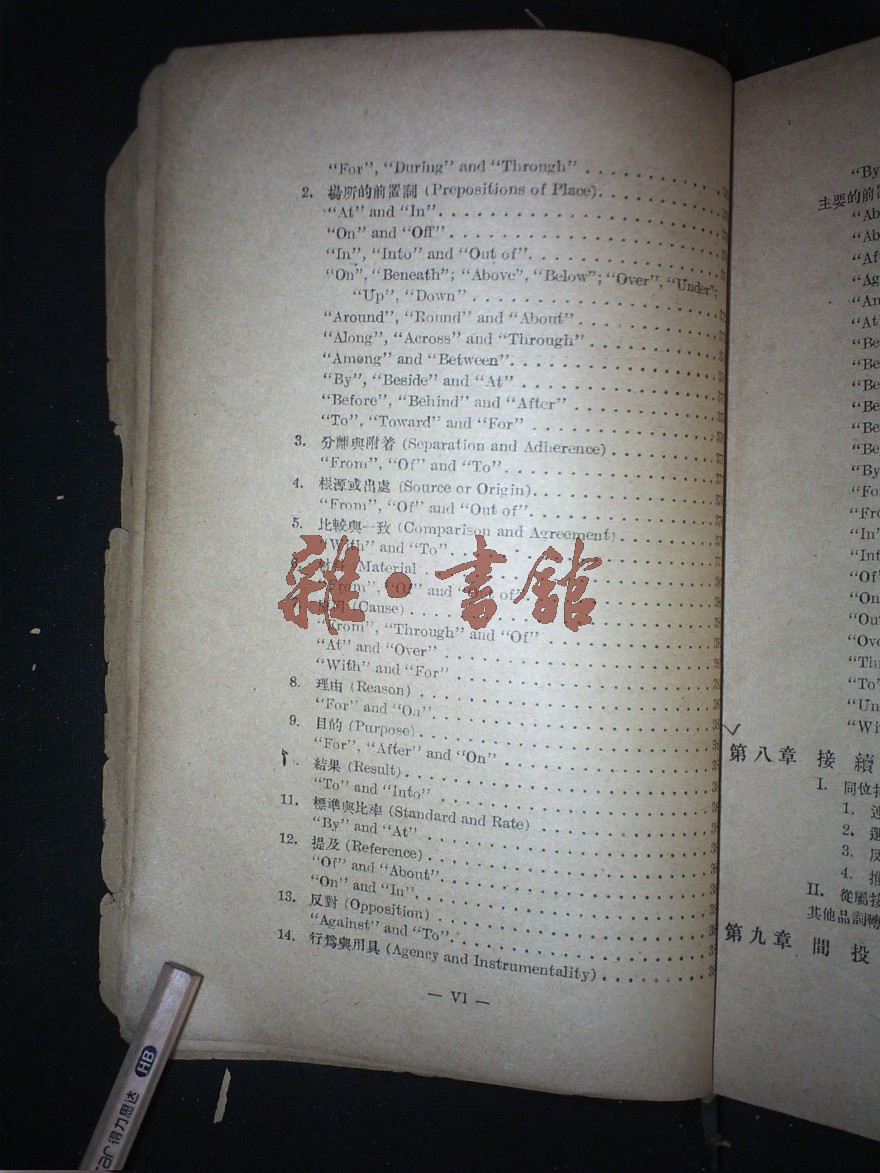 "For", "During" and "Through"
2. 場所的前置詞 (Prepositions of Place)
"At" and "In"
"On" and "Off"
"In", "Into" and "Out of"
"On", "Beneath"; "Above", "Below"; "Over", "Under";
"Up", "Down"
"Around", "Round" and "About"
"Along", "Across" and "Through"
"Among" and "Between"
"By", "Beside" and "At"
"Before", "Behind" and "After"
"To", "Toward" and "For"
3. 分離與附着 (Separation and Adherence)
"From", "Of" and "To"
4. 根源或出處 (Source or Origin)
"From", "Of" and "Out of"
5. 比較與一致 (Comparison and Agreement)
"With" and "To"
(Material
"From", "Of" and "Out of"
(Cause)
"From", "Through" and "Of"
"At" and "Over"
"With" and "For"
8. 理由 (Reason)
"For" and "On"
9. 目的 (Purpose)
"For", "After" and "On"
結果 (Result)
"To" and "Into"
11. 標準與比率 (Standard and Rate)
"By" and "At"
12. 提及 (Reference)
"Of" and "About"
"On" and "In"
13. 反對 (Opposition)
"Against" and "To"
14. 行爲與用具 (Agency and Instrumentality)
— VI —
"By
主要的前置
"Ab
"Ab
"Af
"Ag
"Am
"At
"Be
"Be
"Be
"Be
"Be
"Be
"By
"Fo
"Fro
"In"
"Int
"Of"
"On
"Out
"Ove
"Th
"To"
"Un
"Wi
第八章 接續
I. 同位接
1. 連
2. 選
3. 反
4. 推
II. 從屬接
其他品詞轉
第九章 間投
雜·書館
HB
得力思达